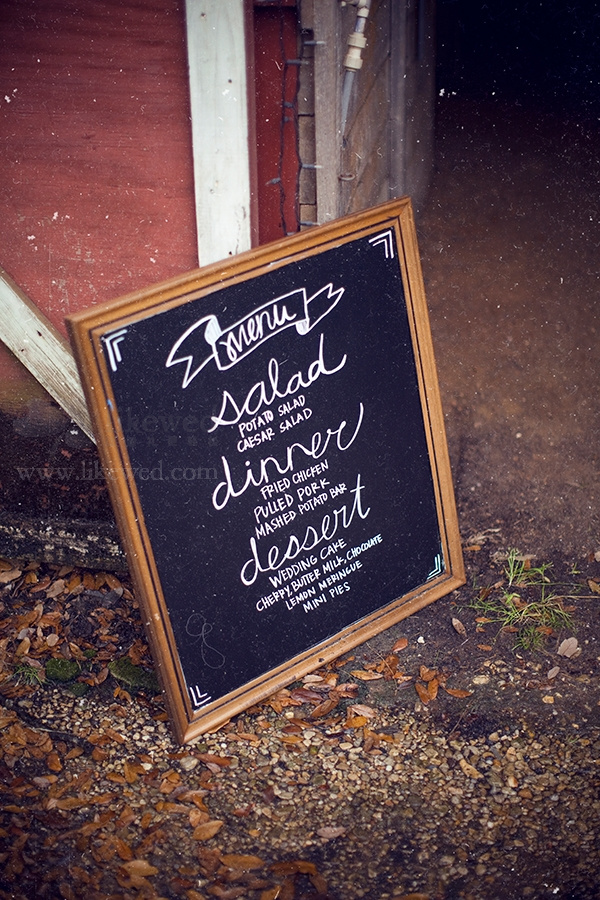 menu
salad
POTATO SALAD
CAESAR SALAD
dinner
FRIED CHICKEN
PULLED PORK
MASHED POTATO BAR
dessert
WEDDING CAKE
CHERRY, BUTTER MILK, CHOCOLATE
LEMON MERINGUE
MINI PIES
likewed
www.likewed.com